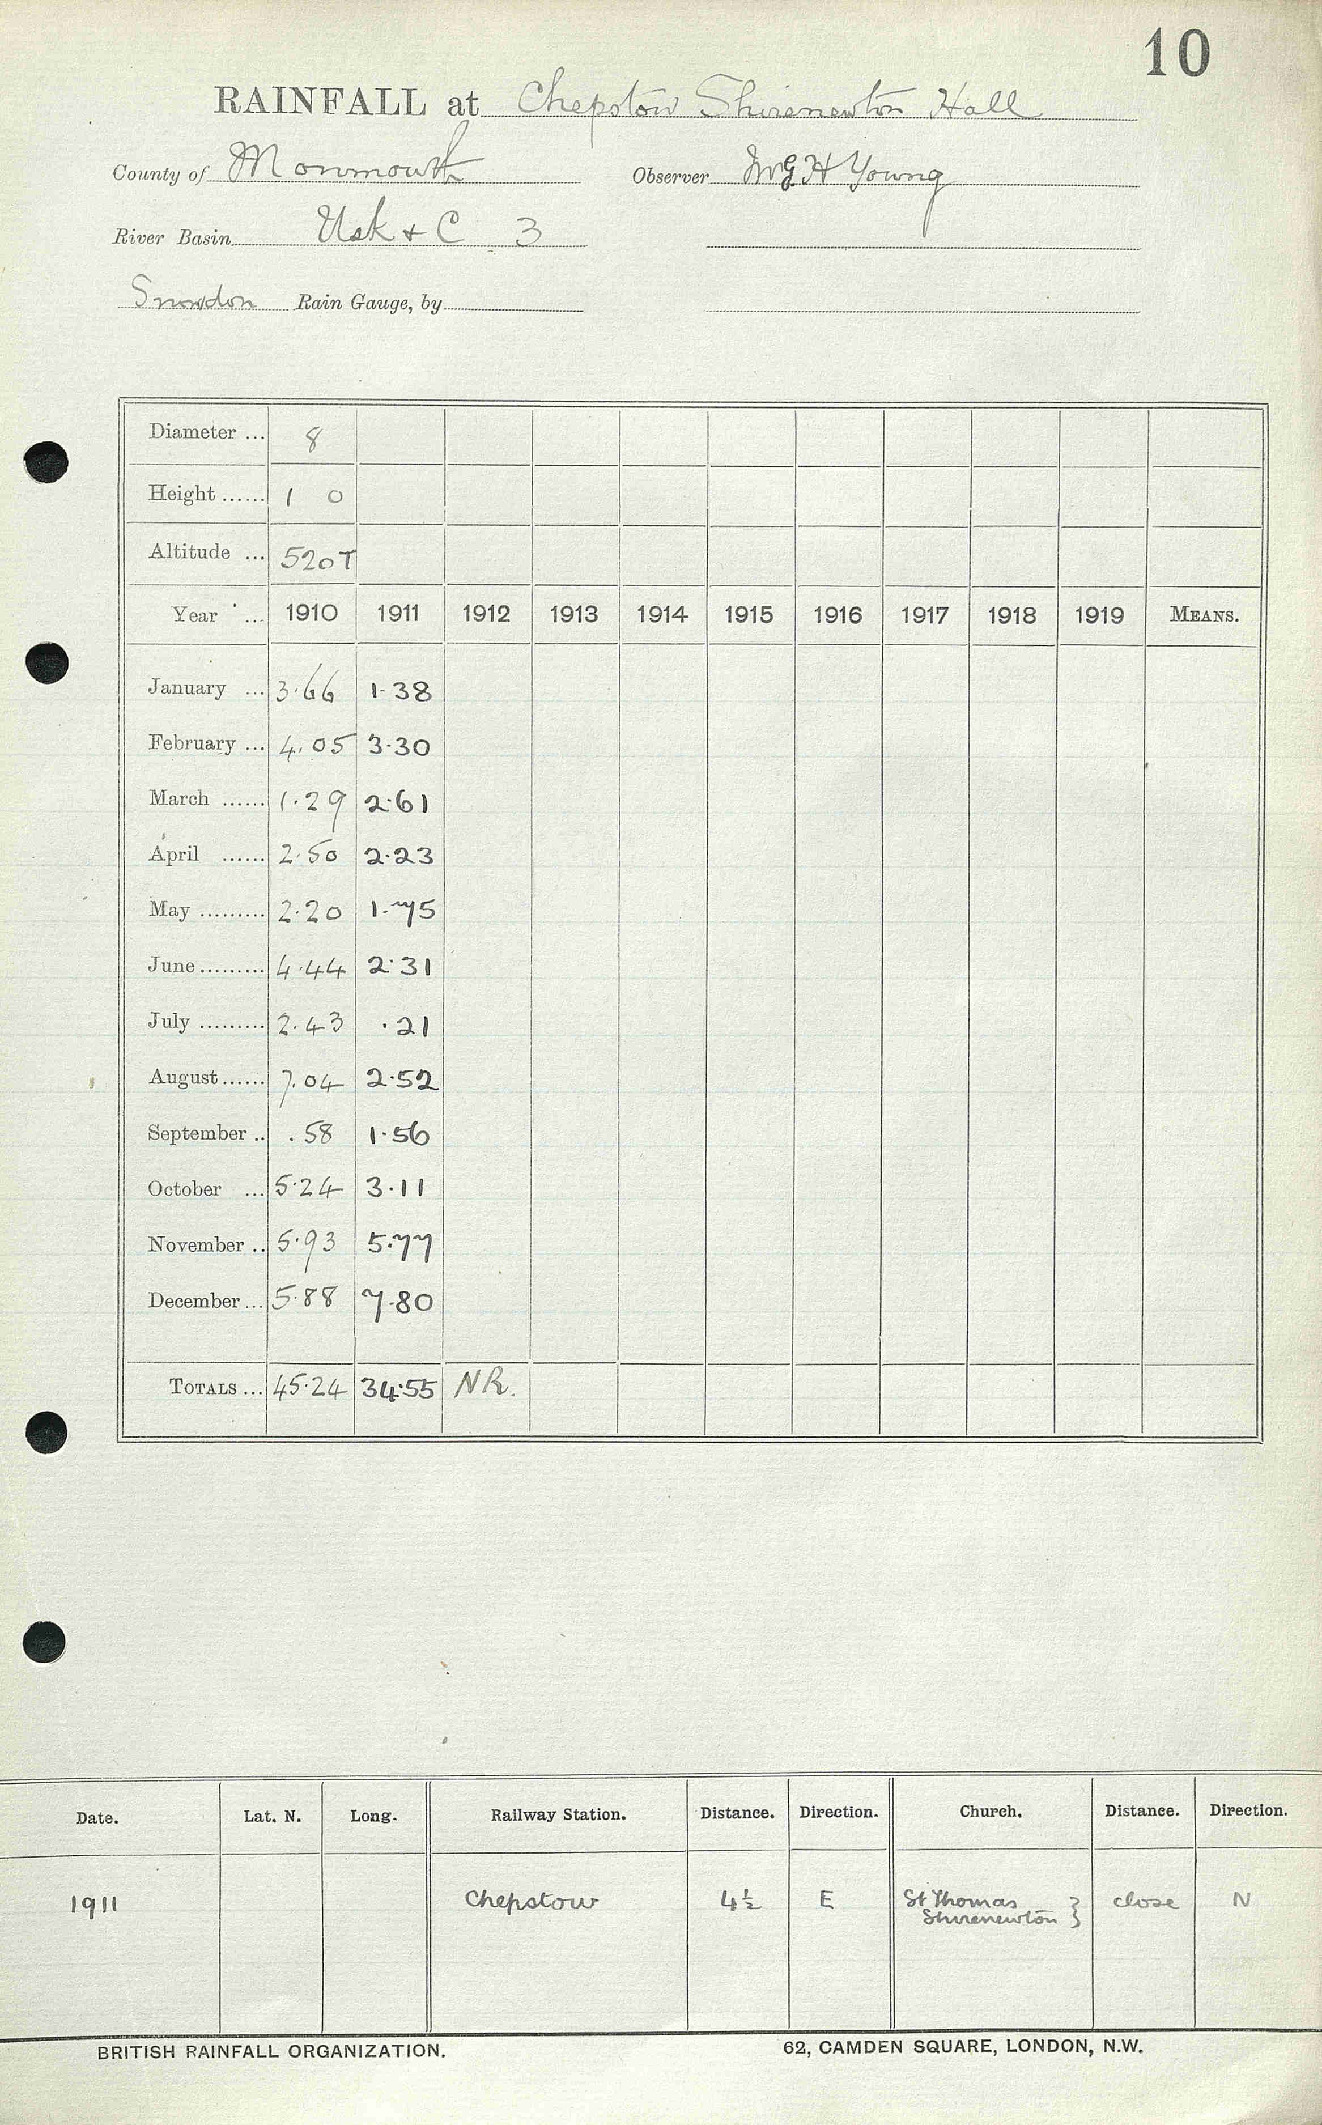 10
RAINFALL at Chepstow Shirenewton Hall
County of Monmouth Observer H Young
River Basin Usk & C 3
Snowdon Rain Gauge, by
Diameter ... 8
Height ...... 1 0
Altitude ... 520T
Year ... 1910 1911 1912 1913 1914 1915 1916 1917 1918 1919 MEANS.
January ... 3.66 1.38
February ... 4.05 3.30
March ...... 1.29 2.61
April ...... 2.50 2.23
May ......... 2.20 1.75
June ......... 4.44 2.31
July ......... 2.43 .21
August ...... 7.04 2.52
September .. .58 1.56
October ... 5.24 3.11
November .. 5.93 5.77
December ... 5.88 7.80
TOTALS ... 45.24 34.55 NR.
Date. Lat. N. Long. Railway Station. Distance. Direction. Church. Distance. Direction.
1911 Chepstow 4½ E St Thomas } close N
Shirenewton }
BRITISH RAINFALL ORGANIZATION. 62, CAMDEN SQUARE, LONDON, N.W.